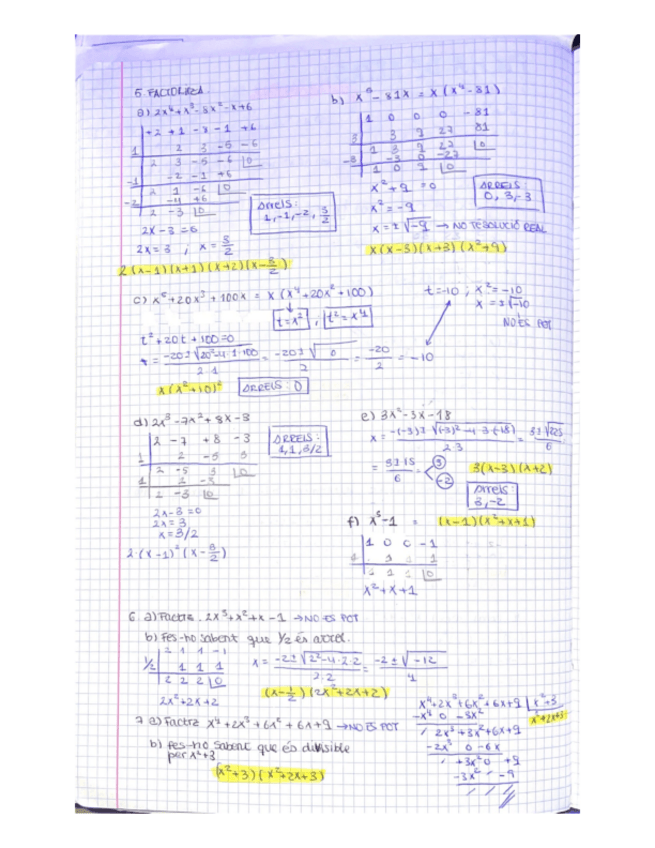 5. FACTORITZA.
a) 2x⁴+x³-8x²-x+6
+2 +1 -8 -1 +6
1 2 3 -5 -6
2 3 -5 -6 |0
-1 -2 -1 +6
2 1 -6 |0
-2 -4 +6
2 -3 |0
Arrels:
1,-1,-2, 3/2
2x-3=6
2x=3 ; x=3/2
2(x-1)(x+1)(x+2)(x-3/2)
b) x⁵-81x = x(x⁴-81)
1 0 0 0 -81
3 3 9 27 81
1 3 9 27 |0
-3 -3 0 -27
1 0 9 |0
x²+9=0
x²=-9
x=±√-9 → NO TÉ SOLUCIÓ REAL
ARRELS
0, 3,-3
x(x-3)(x+3)(x²+9)
c) x⁵+20x³+100x = x(x⁴+20x²+100)
t=x² , t²=x⁴
t=-10 ; x²=-10
x=±√-10
NO ÉS POT
t²+20t+100=0
t = -20±√20²-4·1·100 / 2·1 = -20±√0 / 2 = -20/2 = -10
x(x²+10)² ARRELS: 0
d) 2x³-7x²+8x-3
2 -7 +8 -3
1 2 -5 3
2 -5 3 |0
1 2 -3
2 -3 |0
ARRELS:
1,1,3/2
2x-3=0
2x=3
x=3/2
2·(x-1)²(x-3/2)
e) 3x²-3x-18
x = -(-3)±√(-3)²-4·3·(-18) / 2·3 = 3±√225 / 6
= 3±15 / 6 = 3 -2
3(x-3)(x+2)
Arrels:
3,-2
f) x³-1 = (x-1)(x²+x+1)
1 0 0 -1
1 1 1 1
1 1 1 |0
x²+x+1
6. a) Factra. 2x³+x²+x-1 → NO ES POT
b) Fes-ho sabent que 1/2 és arrel.
2 1 1 -1
1/2 1 1 1
2 2 2 |0
2x²+2x+2
x = -2±√2²-4·2·2 / 2·2 = -2±√-12 / 4
(x-1/2)(2x²+2x+2)
7 a) Factra x⁴+2x³+6x²+6x+9 → NO ES POT
b) Fes-ho sabent que és divisible
per x²+3
(x²+3)(x²+2x+3)
x⁴+2x³+6x²+6x+9 |x²+3
-x⁴ 0 -3x² x²+2x+3
2x³+3x²+6x+9
-2x³ 0 -6x
+3x² 0 +9
-3x² -9